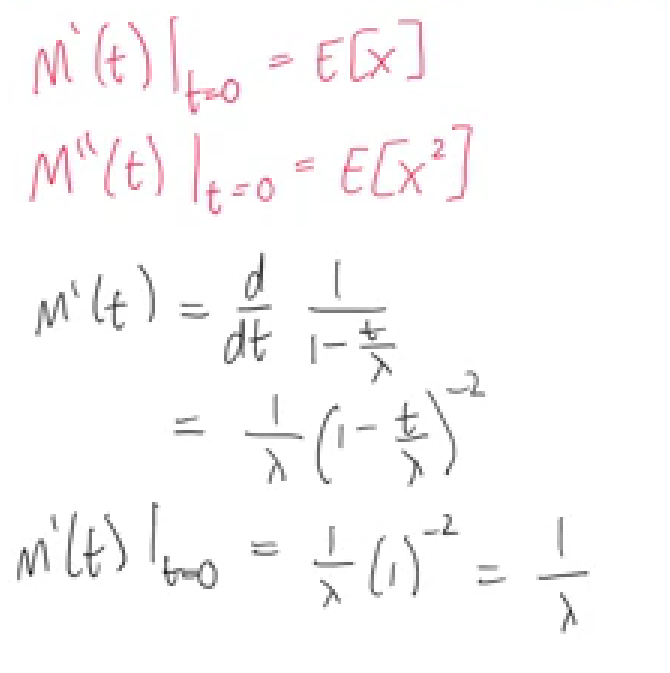 M'(t) |_{t=0} = E[x]
M''(t) |_{t=0} = E[x²]
M'(t) = d/dt 1/(1 - t/λ)
= 1/λ (1 - t/λ)^{-2}
M'(t) |_{t=0} = 1/λ (1)^{-2} = 1/λ